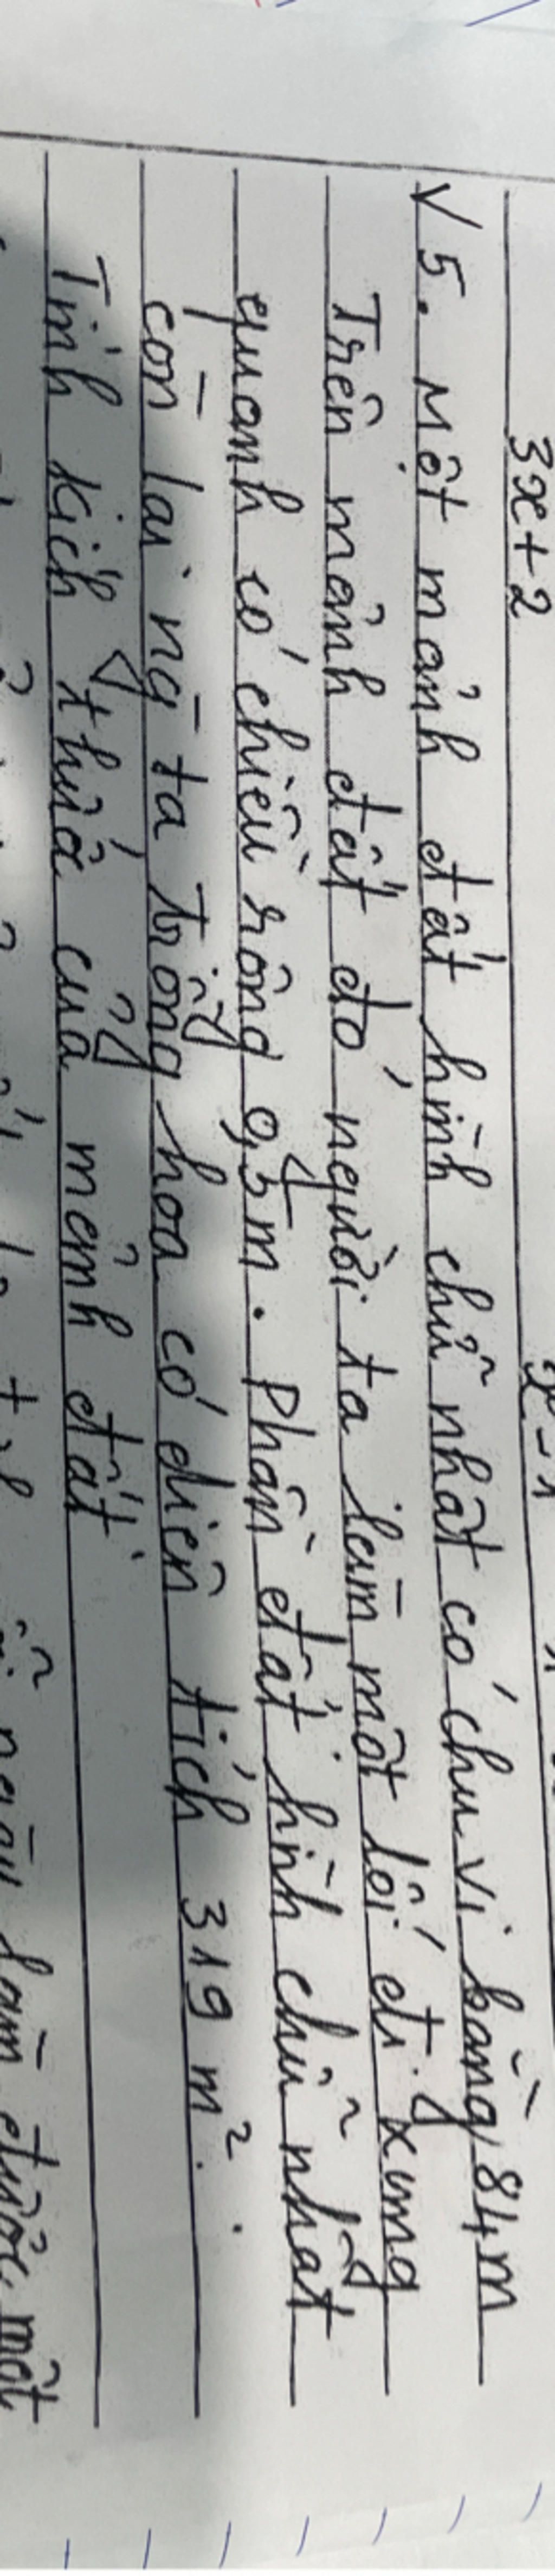 3x+2
√ 5. Một mảnh đất hình chữ nhật có chu vi bằng 84m
Trên mảnh đất đó người ta làm một lối đi xung
quanh có chiều rộng 0,5m. Phần đất hình chữ nhật
còn lại ng ta trồng hoa có diện tích 319 m².
Tính kích thước của mảnh đất